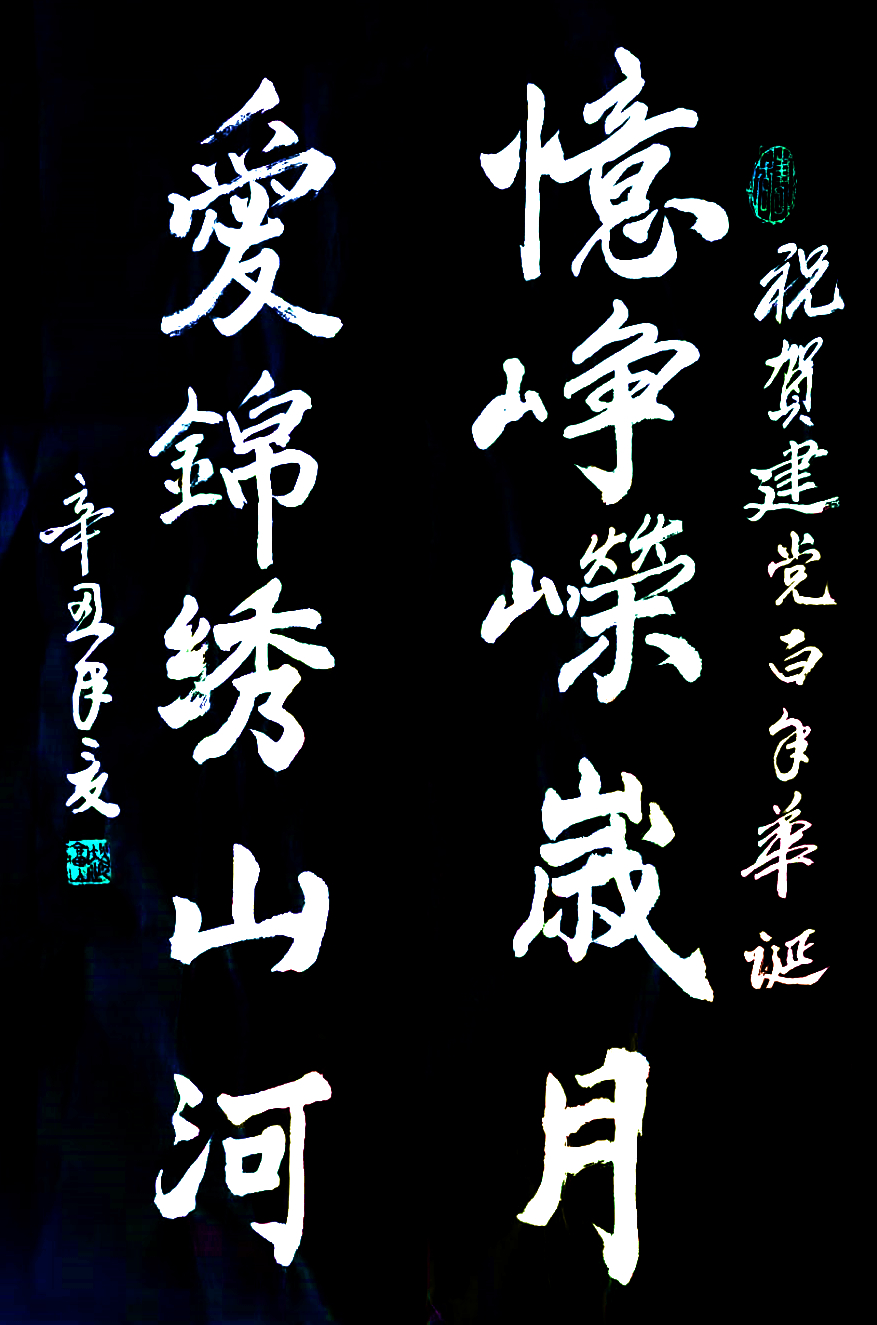 祝賀建党百年華誕
憶崢嶸歲月
愛錦绣山河
辛丑年